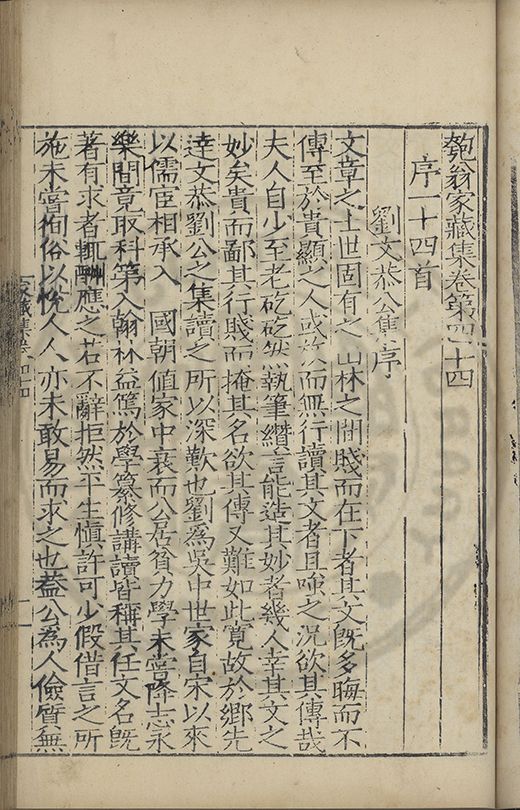 匏翁家藏集卷第四十四
序一十四首
劉文恭公集序
文章之士世固有之山林之間賤而在下者其文旣多晦而不
傳至於貴顯之人或竒而無行讀其文者且唾之况欲其傳哉
夫人自少至老矻矻然執筆纘言能造其妙者幾人幸其文之
妙矣貴而鄙其行賤而掩其名欲其傳又難如此寛故於鄉先
逹文恭劉公之集讀之所以深歎也劉為吳中世家自宋以來
以儒宦相承入 國朝値家中衰而公居貧力學未嘗降志永
樂間竟取科第入翰林益篤於學纂修講讀皆稱其任文名旣
著有求者輒酬應之若不辭拒然平生愼許可少假借言之所
施未嘗徇俗以恱人人亦未敢易而求之也葢公為人儉質無
家藏集卷四十四
一